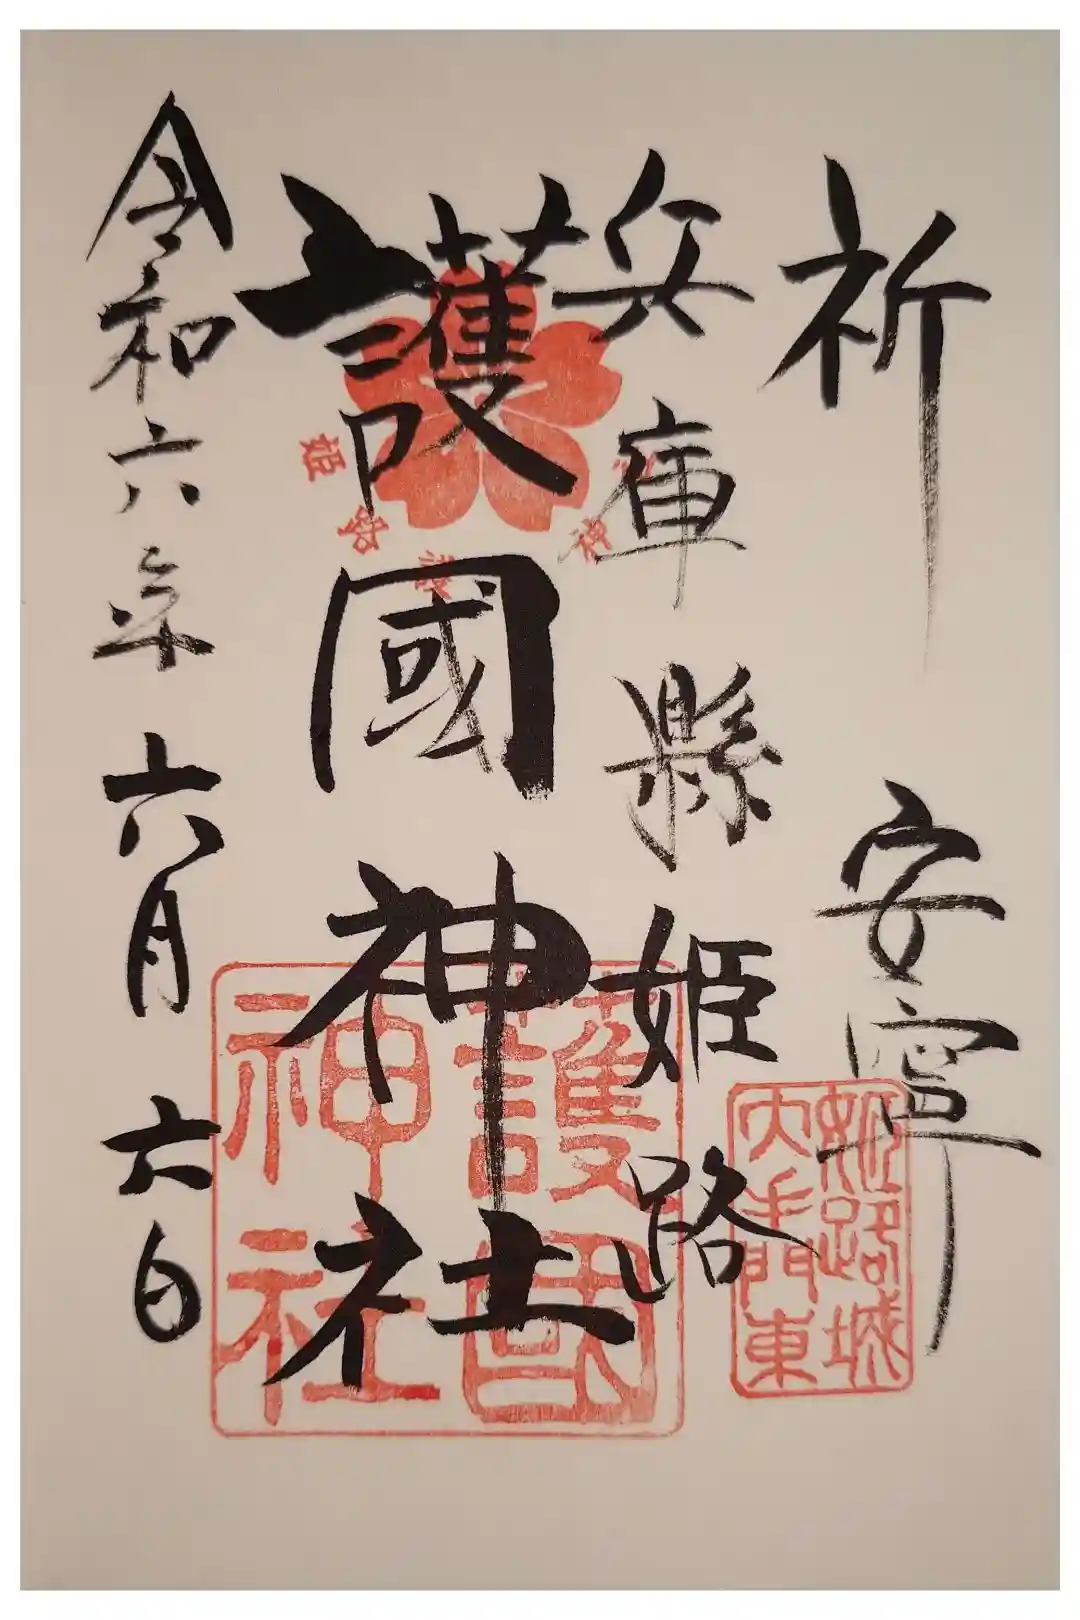 祈 安寧
兵庫縣姫路
護國神社
令和六年六月六日
姫路護 神
護国
神社
姫路城
大手門東